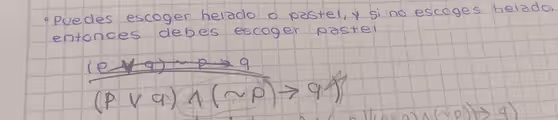 • Puedes escoger helado o pastel, y si no escoges helado
entonces debes escoger pastel
(p v q) ~ p → q
(p v q) ∧ (~p) → q